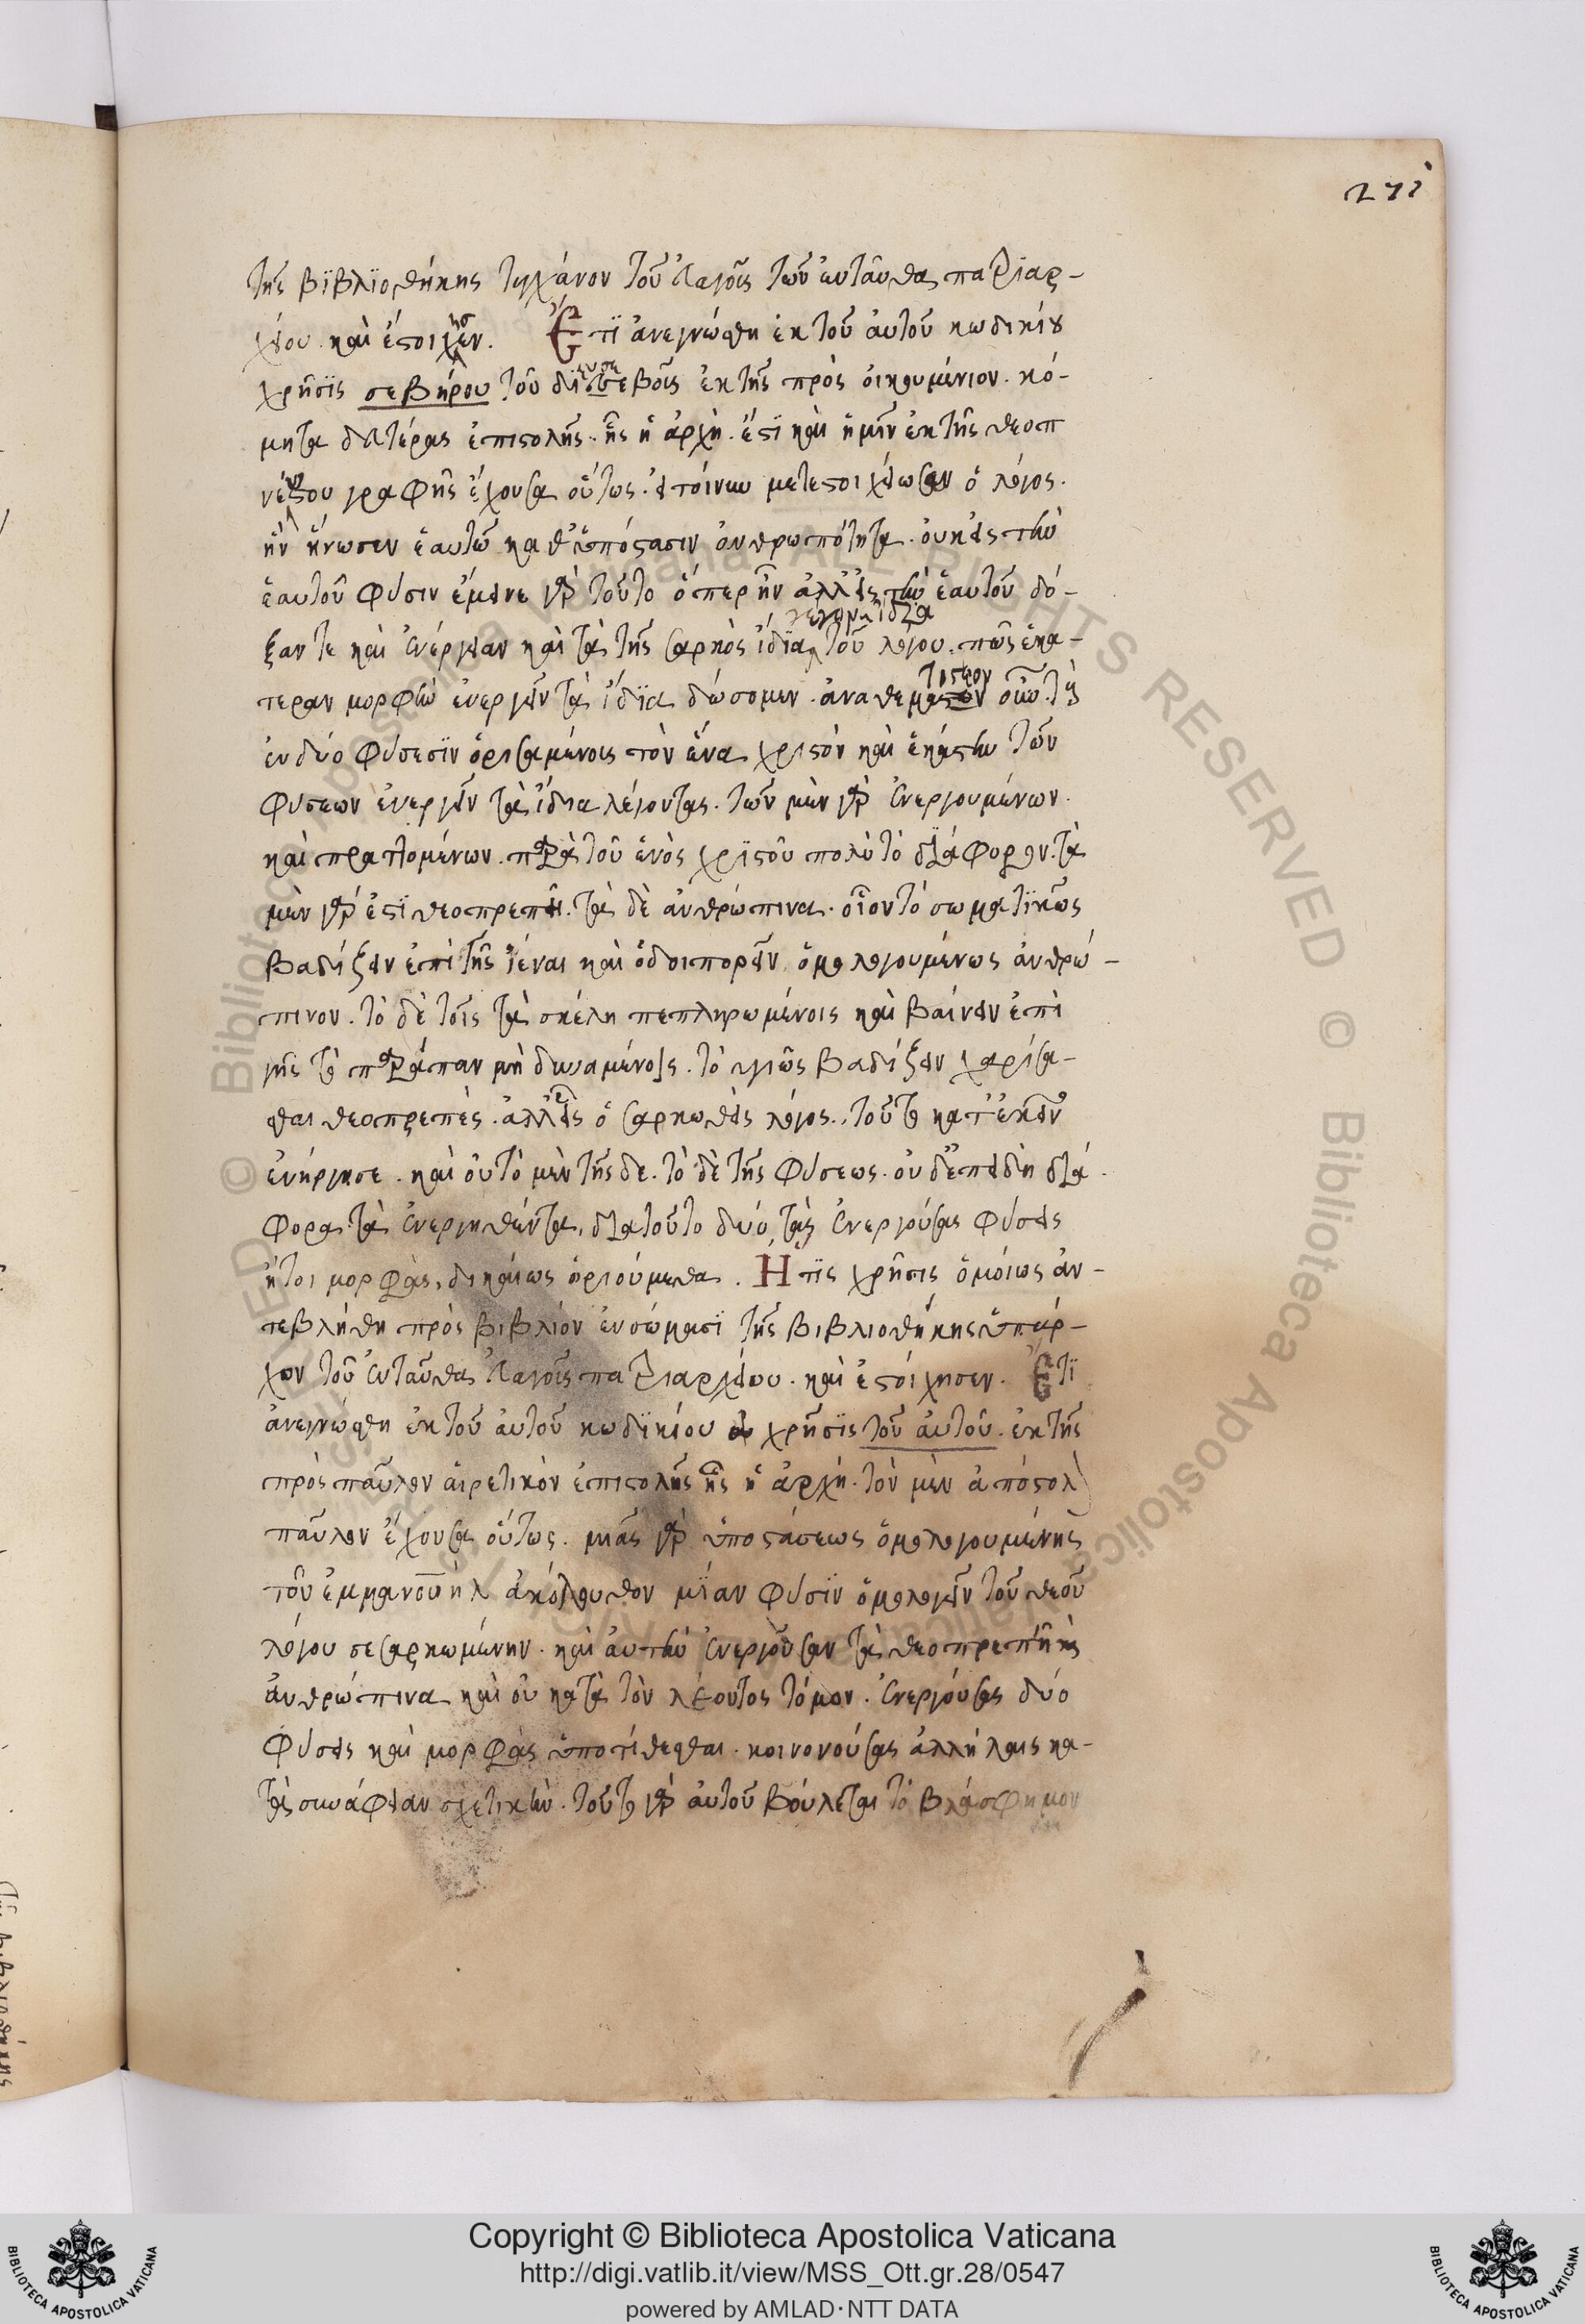 271
τῆς βϊβλϊοθήκης τυγχάνον τοῦ εὐαγοῦς τῶν ἐνταῦθα πατρϊαρ-
χείου καὶ ἐστοιχησεν. Ἔτϊ ἀνεγνώσθη ἐκ τοῦ αὐτοῦ κωδικίου
χρῆσϊς σεβήρου τοῦ δυσσεβοῦς ἐκ τῆς πρὸς οἰκουμένιον. κό-
μητα δευτέρας ἐπιστολῆς. ἧς ἡ ἀρχὴ. ἔστϊ καὶ ἡμῖν ἐκ τῆς θεοπ
νεύστου γραφῆς ἔχουσα οὕτως. εἰ τοίνυν μετεστοιχείωσεν ὁ λόγος.
ἣν ἥνωσεν ἑαυτῶ καθ᾽ ὑπόστασιν ἀνθρωπότητα. οὐκ εἰς τὴν
ἑαυτοῦ φύσιν ἔμεινε γὰρ τοῦτο ὅπερ ἦν ἀλλ᾽ εἰς τὴν ἑαυτοῦ δό-
ξαν τε καὶ ἐνέργειαν καὶ τὰ τῆς σαρκὸς ἴδϊα γέγονεν ἴδϊα τοῦ λόγου. πῶς ἑκα-
τεραν μορφὴν ἐνεργεῖν τὰ ἴδϊα δώσομεν. ἀναθεματιστέον οὖν τοὺς
ἐν δύο φύσεσϊν ὁρισαμένους τὸν ἕνα χριστὸν καὶ ἑκάστην τῶν
φύσεων ἐνεργεῖν τὰ ἴδια λέγοντας. τῶν μὲν γὰρ ἐνεργουμένων.
καὶ πραττομένων. παρὰ τοῦ ἑνὸς χρϊστοῦ πολὺ τὸ διάφορον. τὰ
μὲν γάρ ἐστϊ θεοπρεπῆ. τὰ δὲ ἀνθρώπινα. οἷον τό σωματϊκῶς
βαδίζειν ἐπὶ γῆς ϊέναι καὶ ὁδοιπορεῖν ὁμολογουμένως ἀνθρώ-
πινον. τὸ δὲ τοῖς τὰ σκέλη πεπληρωμένοις καὶ βαίνειν ἐπὶ
γῆς τὸ παράπαν μὴ δυναμένοις. τὸ ὑγιῶς βαδίζειν χαρίσα-
σθαι θεοπρεπές. ἀλλ᾽ εἷς ὁ σαρκωθεὶς λόγος. τοῦτο κατ᾽ ἐκεῖνο
ἐνήργησε. καὶ οὐ τὸ μὲν τῆς δε. τὸ δὲ τῆς φύσεως. οὐδ᾽ ἐπειδὴ διά
φορα τὰ ἐνεργηθέντα, διατοῦτο δυό τὰς ἐνεργούσας φύσεις
ἤτοι μορφὰς, δικαίως ὁριούμεθα. Ἥτϊς χρῆσις ὁμοίως ἀν-
τεβλήθη πρὸς βιβλιόν ἐν σώμασϊ τῆς βιβλιοθήκης ὑπάρ-
χον τοῦ ἐνταῦθα εὐαγοῦς πατριαρχείου. καὶ ἐστοίχησεν. Ἔτϊ
ἀνεγνώσθη ἐκ τοῦ αὐτοῦ κωδϊκίου χρῆσϊς τοῦ αὐτοῦ. ἐκ τῆς
πρὸς παῦλον αἱρετικὸν ἐπιστολῆς ἧς ἡ ἀρχή. τὸν μὲν ἀπόστολ
παῦλον ἔχουσα οὕτως. μιᾶς γὰρ ὑποστάσεως ὁμολογουμένης
τοῦ ἐμμανουὴλ ἀκόλουθον μϊαν φύσϊν ὁμολογεῖν τοῦ θεοῦ
λόγου σεσαρκωμένην. καὶ αὐτὴν ἐνεργοῦσαν τὰ θεοπρεπῆ καὶ
ἀνθρώπινα καὶ οὐ κατὰ τὸν λέοντος τόμον. ἐνεργούσας δύο
φύσεις καὶ μορφὰς ὑποτίθεσθαι. κοινονούσας ἀλλήλαις κα-
τὰ συνάφειαν σχετικὴν. τοῦτο γὰρ αὐτοῦ βούλεται τὸ βλάσφημον
Copyright © Biblioteca Apostolica Vaticana
http://digi.vatlib.it/view/MSS_Ott.gr.28/0547
powered by AMLAD·NTT DATA